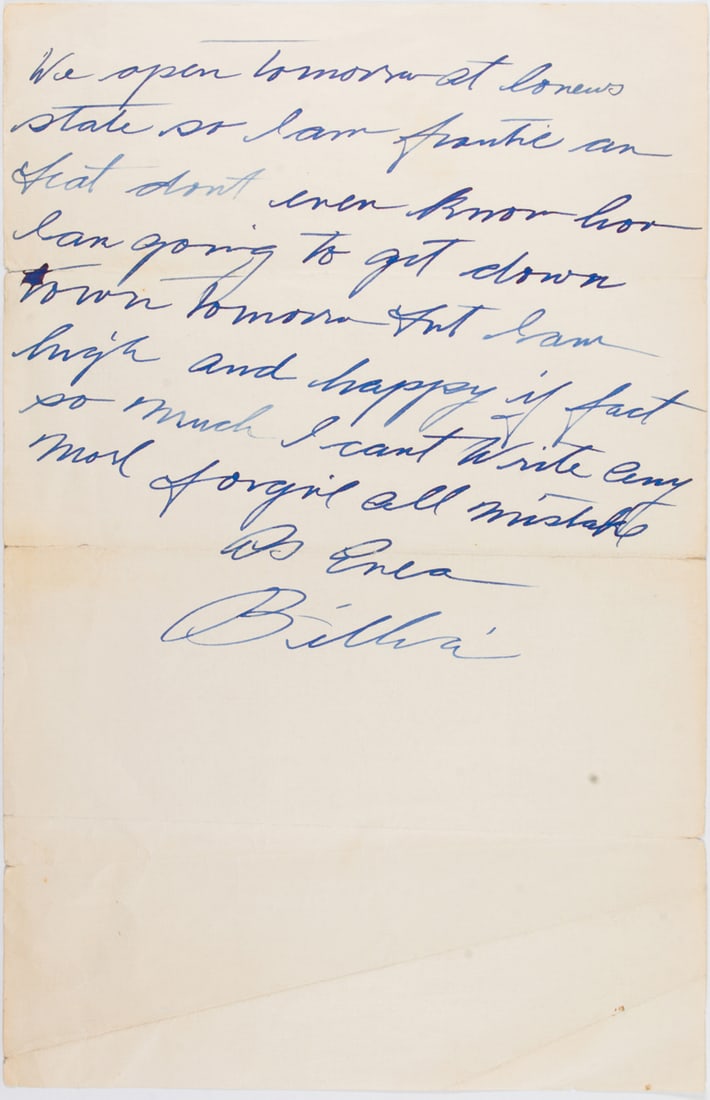 We open tomorrow at lonews
state so I am frantic an
that dont even know how
I am going to get down
town tomorrow but I am
high and happy if fact
so much I cant write any
more forgive all mistake
As Ever
Billie